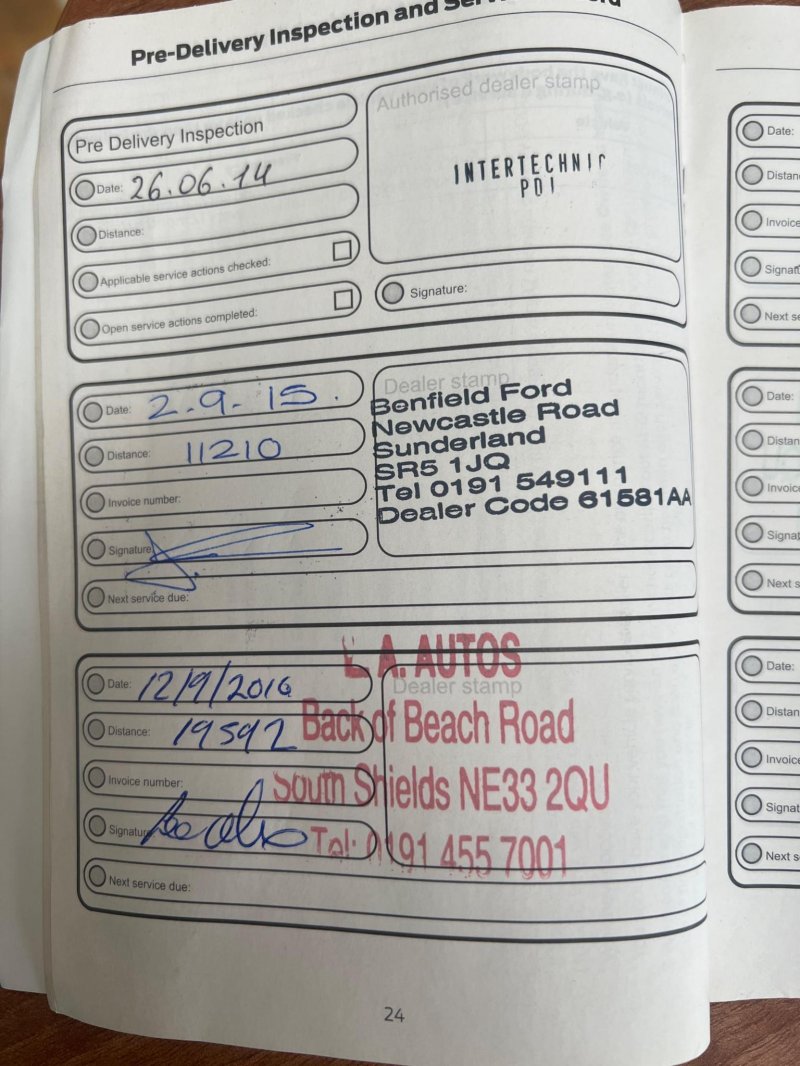 Pre-Delivery Inspection and
Pre Delivery Inspection
Date: 26.06.14
Distance:
Applicable service actions checked:
Open service actions completed:
Authorised dealer stamp
INTERTECHNIC
PDI
Signature:
Date: 2.9.15.
Distance: 11210
Invoice number:
Signature
Next service due:
Dealer stamp
Benfield Ford
Newcastle Road
Sunderland
SR5 1JQ
Tel 0191 549111
Dealer Code 61581AA
Date: 12/9/2016
Distance: 19592
Invoice number:
Signature
Next service due:
A. AUTOS
Dealer stamp
Back of Beach Road
South Shields NE33 2QU
Tel: 0191 455 7001
24
Date:
Distan
Invoice
Signat
Next se
Date:
Distan
Invoice
Signat
Next s
Date:
Distan
Invoice
Signat
Next s